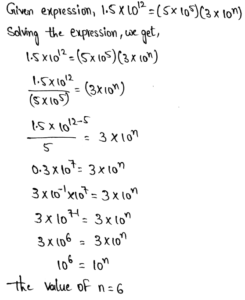 Given expression, 1.5 × 10¹² = (5 × 10⁵)(3 × 10ⁿ)
Solving the expression, we get,
1.5 × 10¹² = (5 × 10⁵)(3 × 10ⁿ)
1.5 × 10¹² / (5 × 10⁵) = (3 × 10ⁿ)
1.5 × 10¹²⁻⁵ / 5 = 3 × 10ⁿ
0.3 × 10⁷ = 3 × 10ⁿ
3 × 10⁻¹ × 10⁷ = 3 × 10ⁿ
3 × 10⁷⁻¹ = 3 × 10ⁿ
3 × 10⁶ = 3 × 10ⁿ
10⁶ = 10ⁿ
the value of n = 6